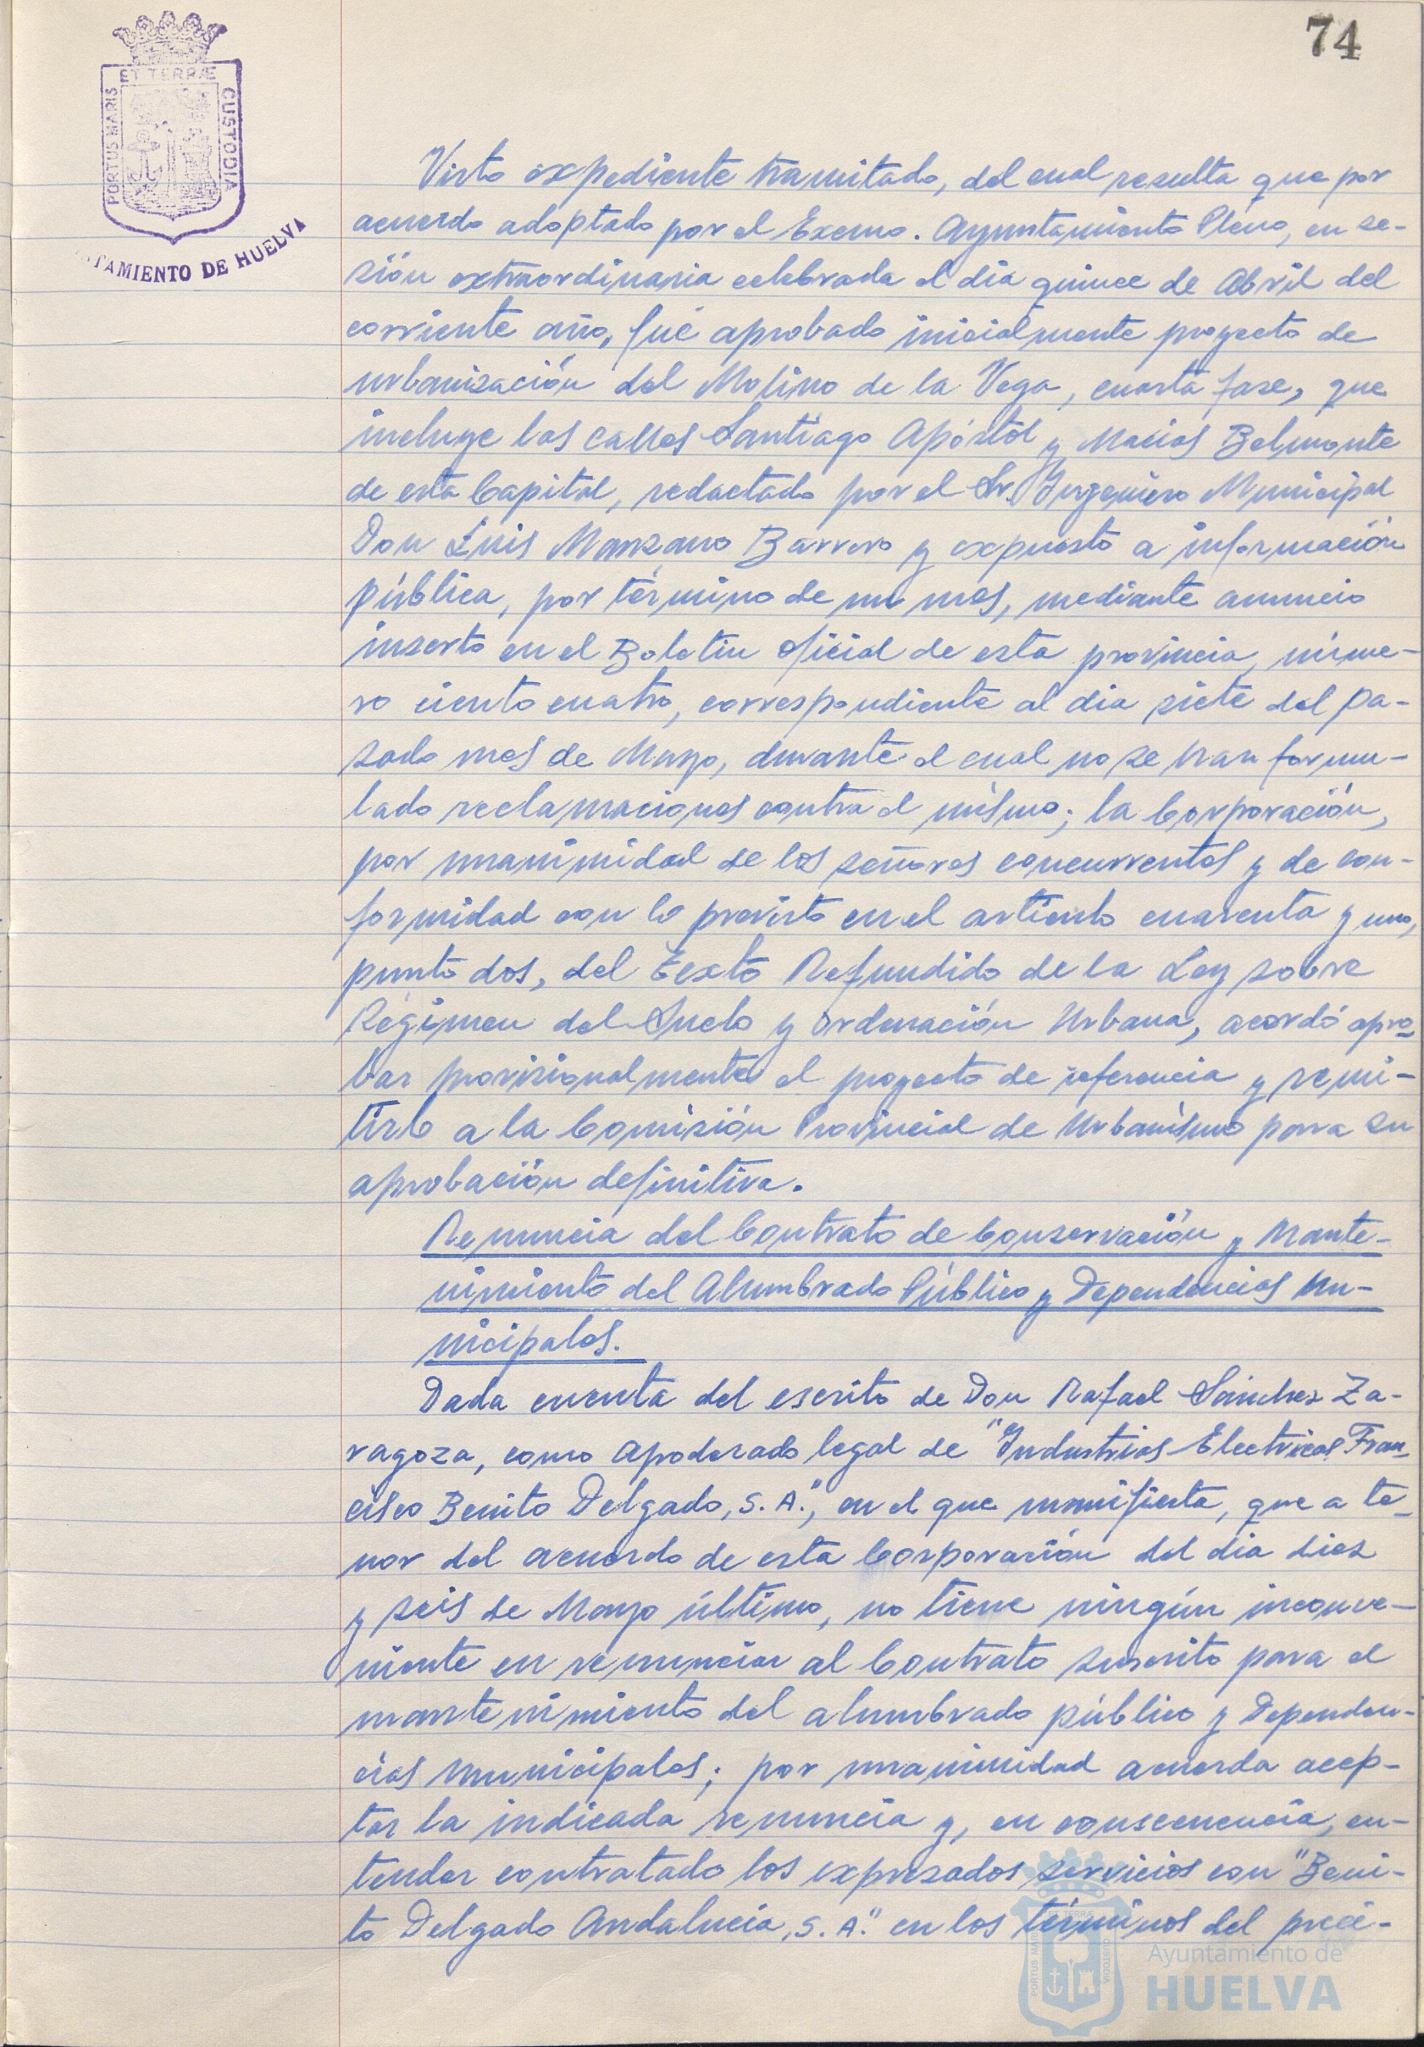 74
ET TERRÆ
PORTUS MARIS
CUSTODIA
TAMIENTO DE HUELVA
Visto expediente tramitado, del cual resulta que por
acuerdo adoptado por el Excmo. Ayuntamiento Pleno, en se-
sión extraordinaria celebrada el dia quince de Abril del
corriente año, fué aprobado inicialmente proyecto de
urbanización del Molino de la Vega, cuarta fase, que
incluye las calles Santiago Apóstol y Macias Belmonte
de esta Capital, redactado por el Sr. Ingeniero Municipal
Don Luis Manzano Barrero y expuesto a información
pública, por término de un mes, mediante anuncio
inserto en el Boletin Oficial de esta provincia, núme-
ro ciento cuatro, correspondiente al dia siete del pa-
sado mes de Mayo, durante el cual no se han formu-
lado reclamaciones contra el mismo; la Corporación,
por unanimidad de los señores concurrentes y de con-
formidad con lo previsto en el artículo cuarenta y uno,
punto dos, del Texto Refundido de la Ley sobre
Régimen del Suelo y Ordenación Urbana, acordó apro-
bar provisionalmente el proyecto de referencia y remi-
tirlo a la Comisión Provincial de Urbanismo para su
aprobación definitiva.
Renuncia del Contrato de Conservación y Mante-
nimiento del Alumbrado Público y Dependencias Mu-
nicipales.
Dada cuenta del escrito de Don Rafael Sánchez Za-
ragoza, como apoderado legal de "Industrias Electricas Fran-
cisco Benito Delgado, S. A.", en el que manifiesta, que a te-
nor del acuerdo de esta Corporación del dia diez
y seis de Mayo último, no tiene ningún inconve-
niente en renunciar al Contrato suscrito para el
mantenimiento del alumbrado público y Dependen-
cias Municipales; por unanimidad acuerda acep-
tar la indicada renuncia y, en consecuencia, en-
tender contratado los expresados servicios con "Beni-
to Delgado Andalucia, S. A." en los términos del preci-
Ayuntamiento de
HUELVA